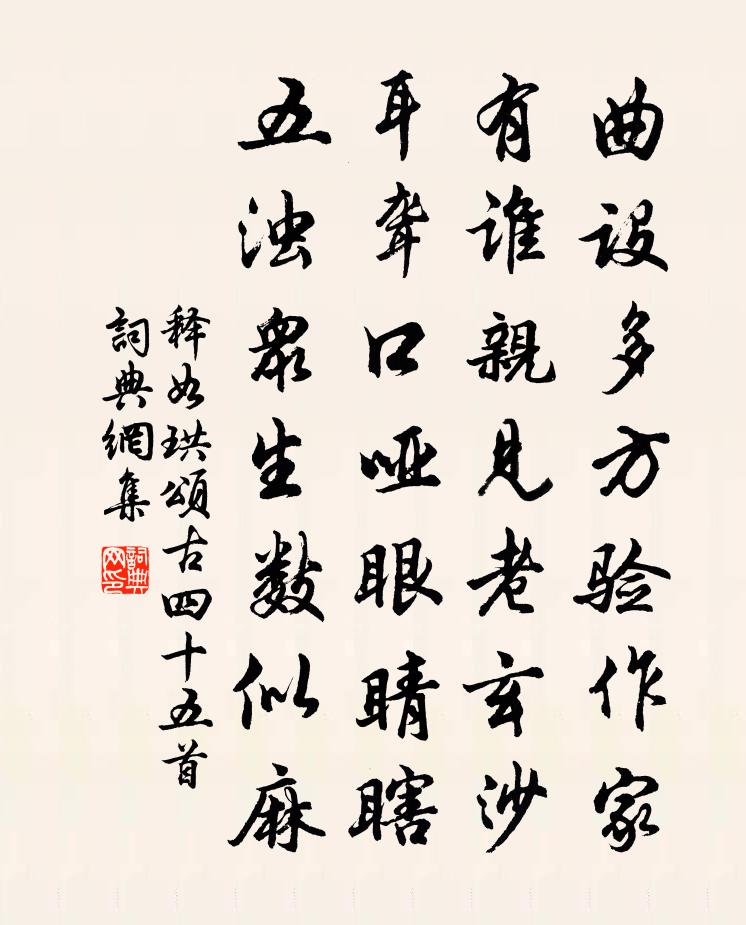 曲设多方验作家
有谁親見老玄沙
耳聋口哑眼睛瞎
五浊眾生数似麻
释如珙頌古四十五首
詞典網集
詞典网印